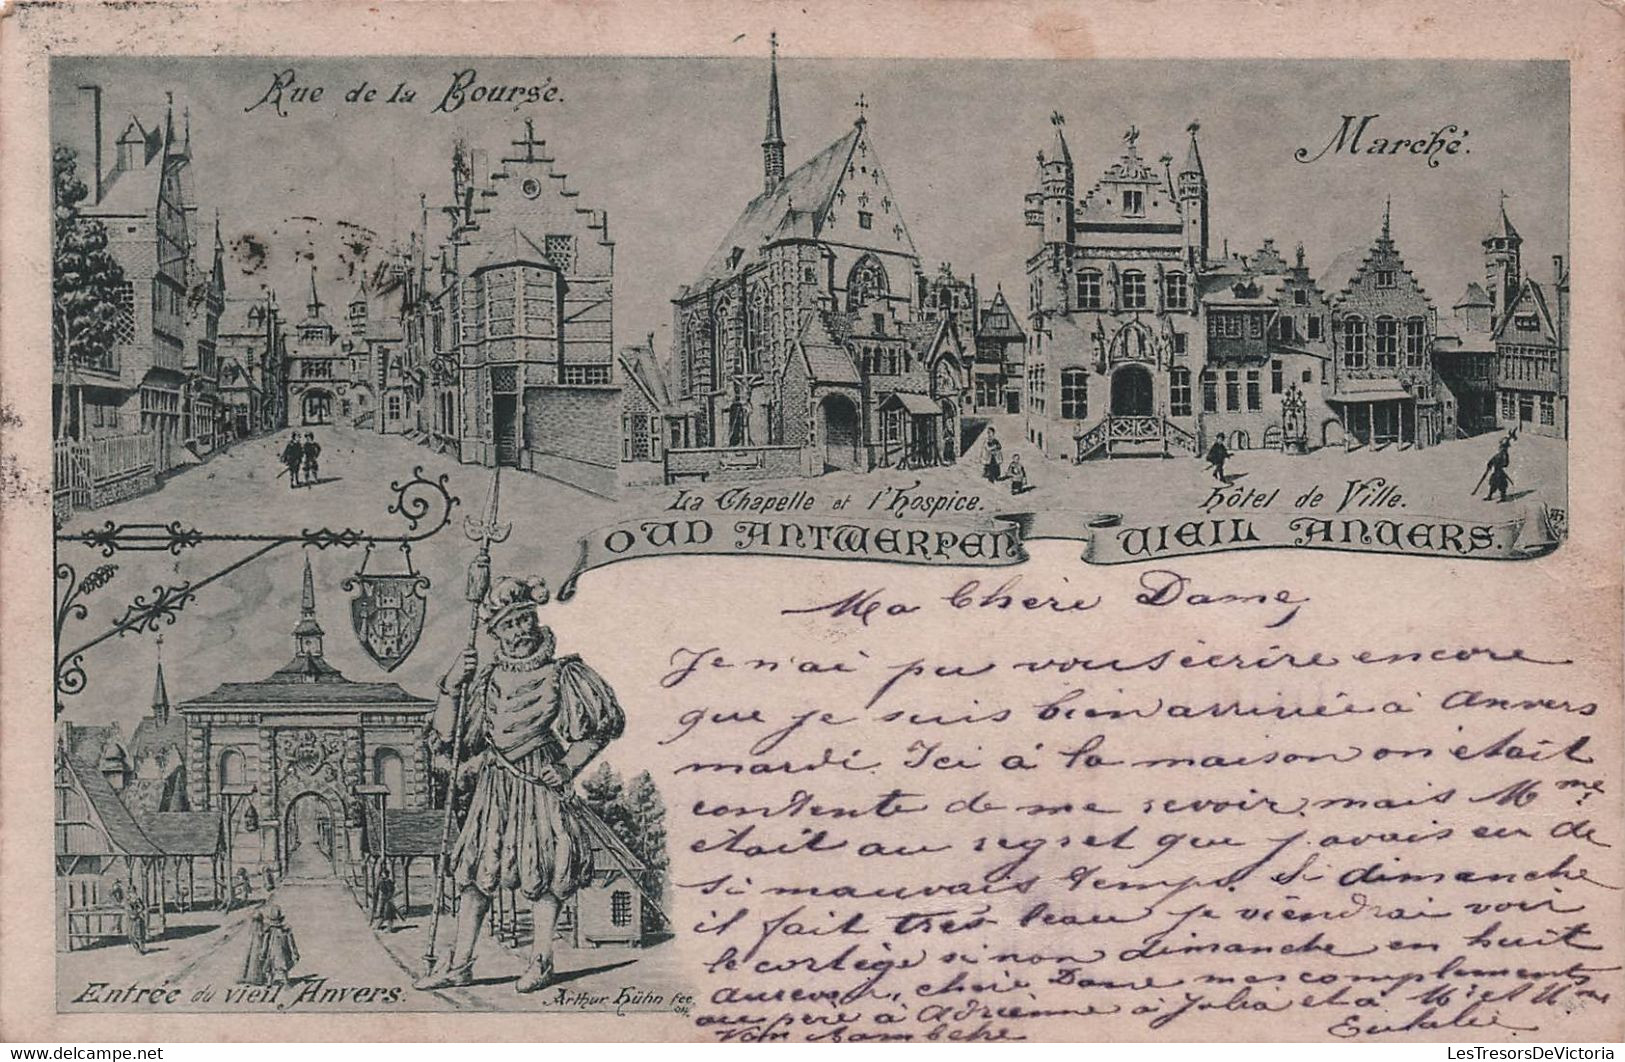 Rue de la Bourse.
Marché.
La Chapelle et l'Hospice.
Hôtel de Ville.
OUD ANTWERPEN
VIEIL ANVERS.
Ma Chère Dame,
Je n'ai pu vous écrire encore
que je suis bien arrivée à Anvers
mardi. Ici à la maison on était
contente de me revoir, mais Mme
était au regret que j'avais eu de
si mauvais temps. Si dimanche
il fait très beau je viendrai voir
le cortège si non dimanche en huit
aurevoir, chère Dame mes compliments
au père à Adrienne à Julia et à Mr et Mme
Van
Eulalie
Entrée du vieil Anvers.
Arthur Hühn fec.
LesTresorsDeVictoria
LesTresorsDeVictoria.delcampe.net